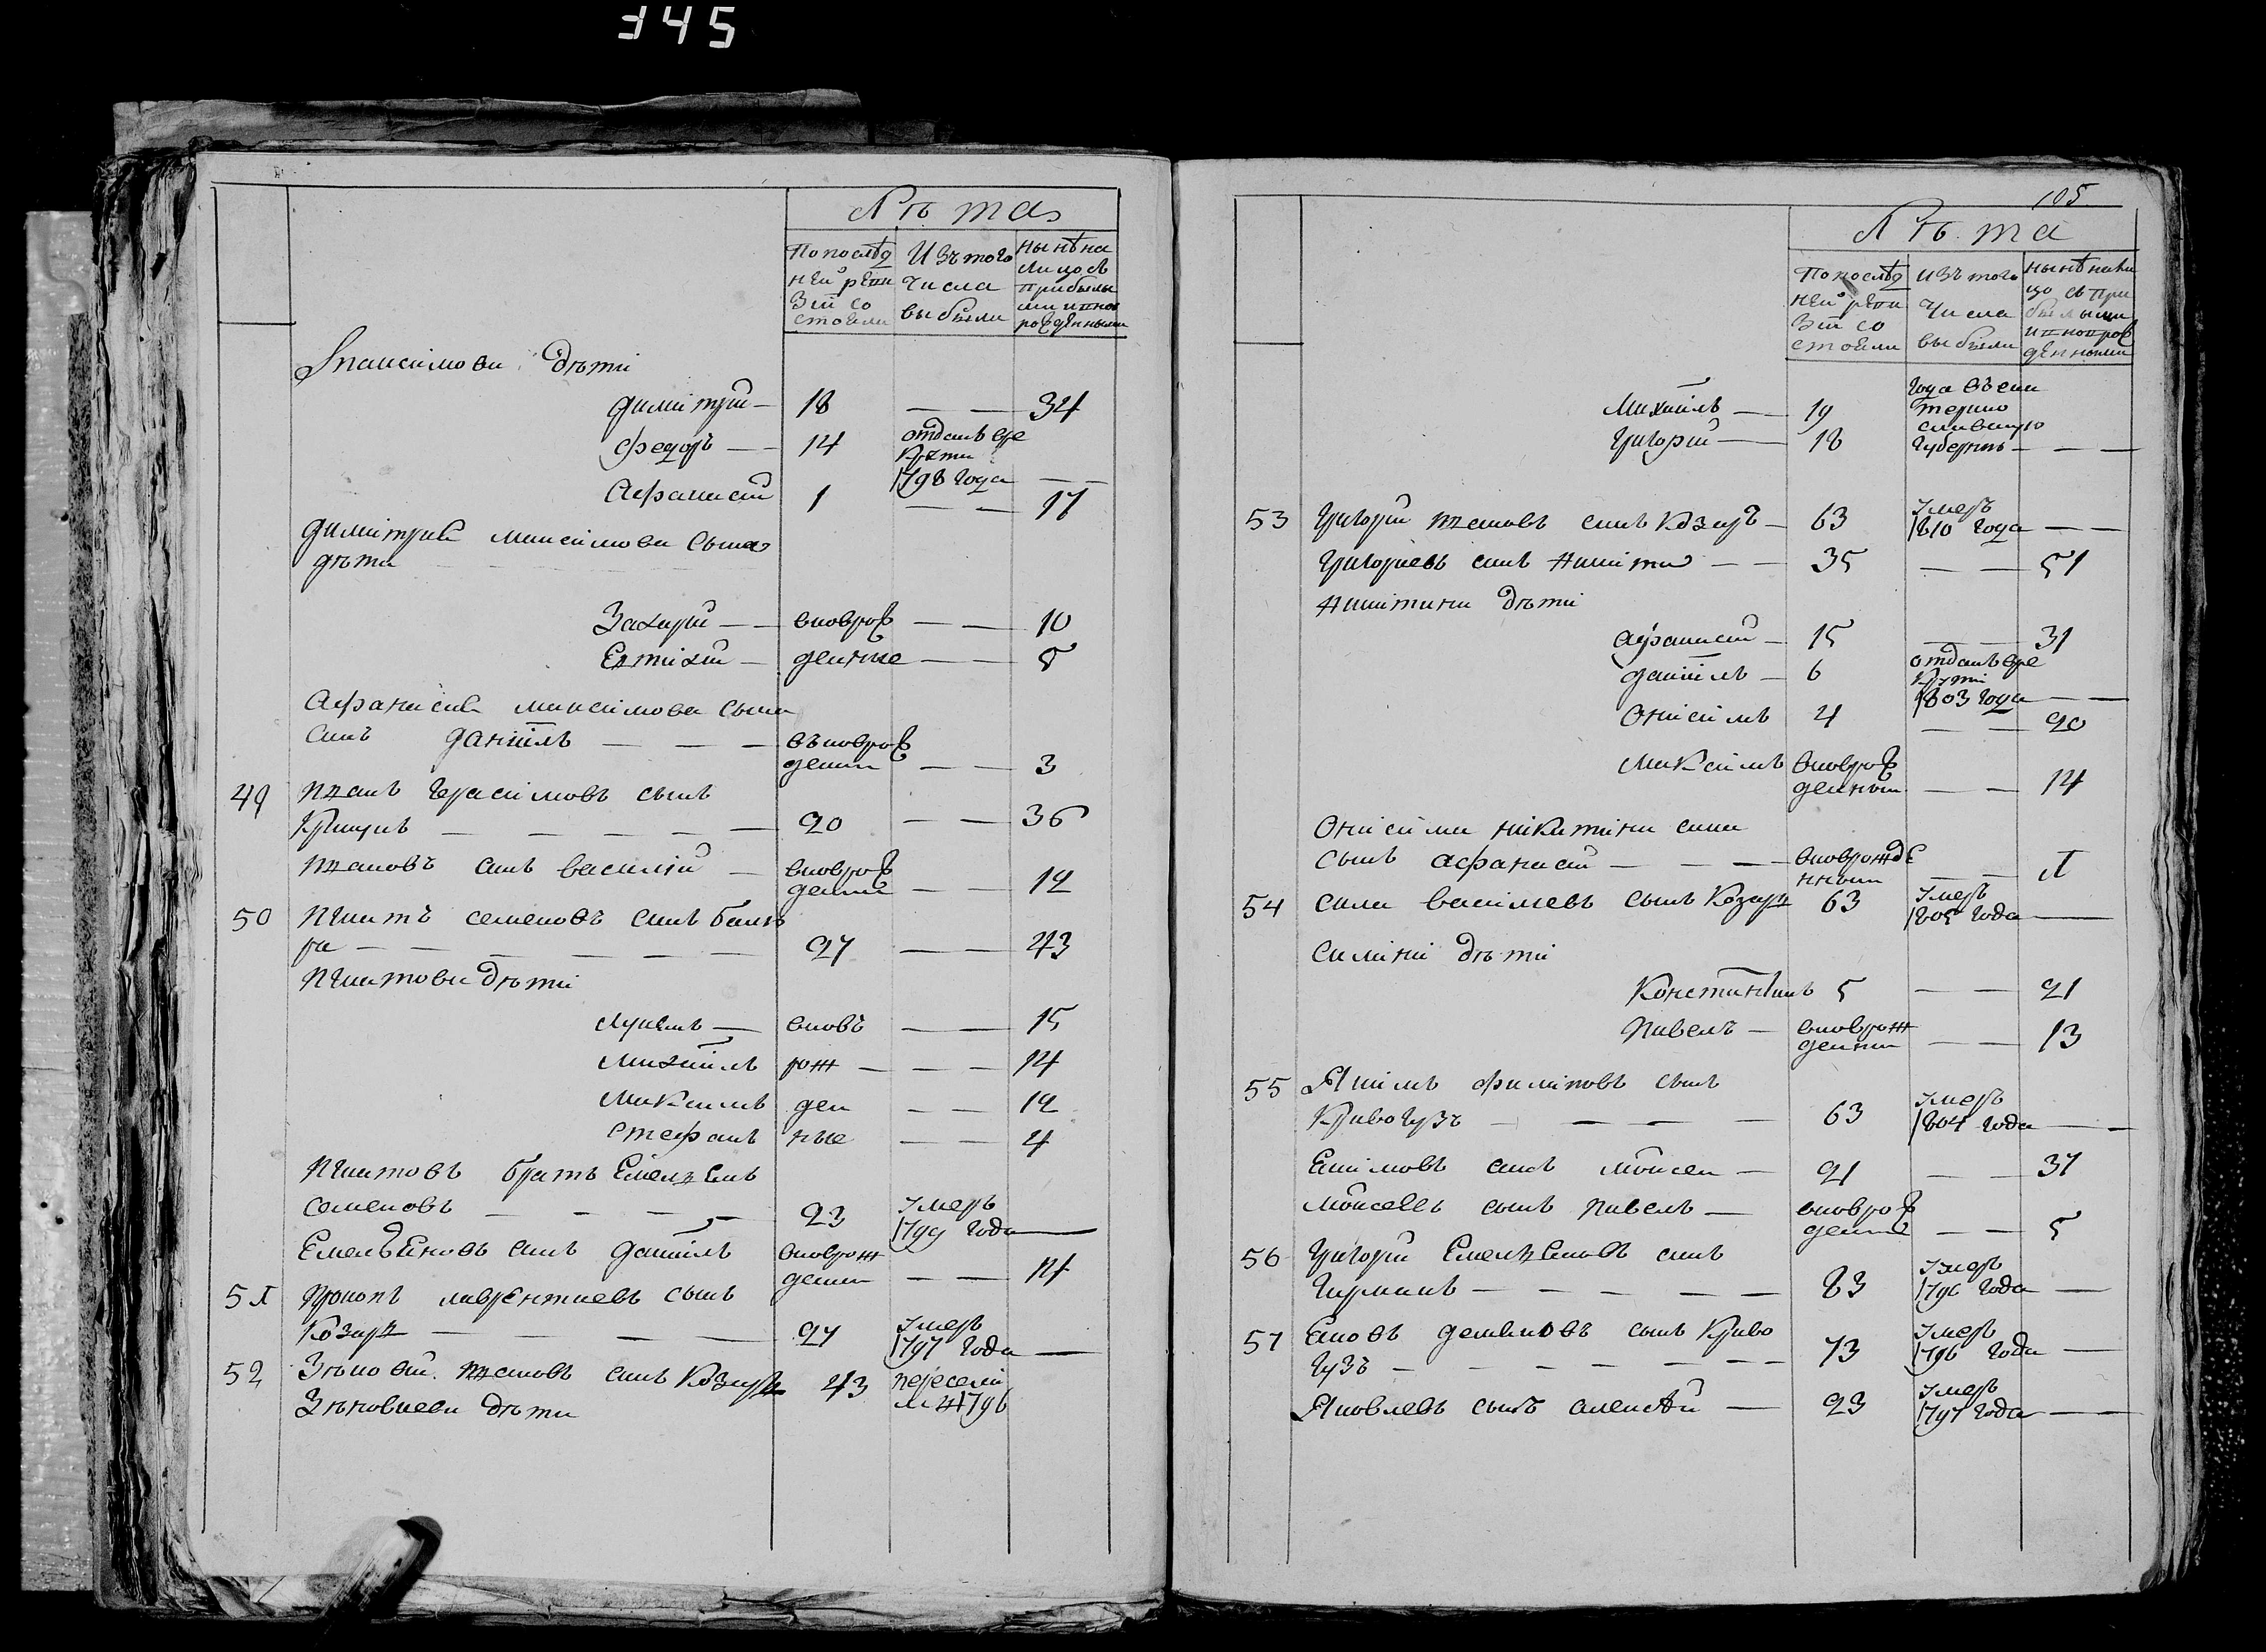 345
Лѣта
По послѣд Изъ того Нынѣ на
ней реви числа лицо съ
зіи со выбыли прибылы
стояли ми и нов
рожденными
Максимови дѣти
Димитрий — 18 — — 34
Федоръ — 14 отданъ вре
крути
1798 года — —
Афанасий 1 — — 17
Димитрия Максимова сына
дѣти
Захарий — — вновьрож — — 10
Евтихий — денные — — 5
Афанасия Максимова сына
синъ Даниилъ — — — въновьрож
денни — — 3
49 Иванъ Герасимовъ сынъ
— — — — — 20 — — 36
Ивановъ синъ Василий — вновьрож
денни — — 12
50 Игнатъ Семеновъ синъ
ра — — — — — 27 — — 43
Игнатови дѣти
Лукаянъ — вновь — — 15
Михаилъ рож — — — 14
Максимъ ден — — 12
Стефанъ ные — — 4
Игнатовъ братъ Емельянъ
Семеновъ — — — — 23 Умеръ
1799 года —
Емельяновъ синъ Даниилъ вновьрож
денни — — 14
51 Прокопъ Лаврентиевъ сынъ
Козаръ — — — — 27 Умеръ
1797 года —
52 Зѣновий Ивановъ синъ Козаръ 43 переселі
1796
Зѣновиеви дѣти
105
Лѣта
По послѣд Изъ того Нынѣ на ли
ней реви числа цо съ при
зіи со выбыли былыми
стояли и новорож
денными
года въ ека
Михаилъ — 19 терино
славскую
Григорий — 18 губернию — — —
53 Григорий Ивановъ синъ Козаръ — 63 Умеръ
1810 года — —
Григориевъ синъ Никита — — 35 — — 51
Никитини дѣти
Афанасий — 15 — — 31
Даниилъ — 6 отданъ вре
крути
1803 года — —
Онисимъ 4 — — 20
Максимъ вновьрож
денный — — 14
Онисима Никитина сина
сынъ Афанасий — — — вновьрожде
нный — — 1
54 Сила Василиевъ сынъ Козаръ 63 Умеръ
1805 года —
Силини дѣти
Константинъ 5 — — 21
Павелъ — вновьрож
денни — — 13
55 Якимъ Филиповъ сынъ
Кривогузъ — — — — 63 Умеръ
1804 года — —
Екимовъ синъ Мойсей — 21 — — 37
Мойсеевъ сынъ Павелъ — вновьрож
денне — — 5
56 Григорий Емельяновъ синъ
— — — — — 83 Умеръ
1796 года —
57 Яковъ Демяновъ сынъ Криво
гузъ — — — — — — 73 Умеръ
1796 года —
Яковлевъ сынъ Алексѣй — 23 Умеръ
1797 года — —